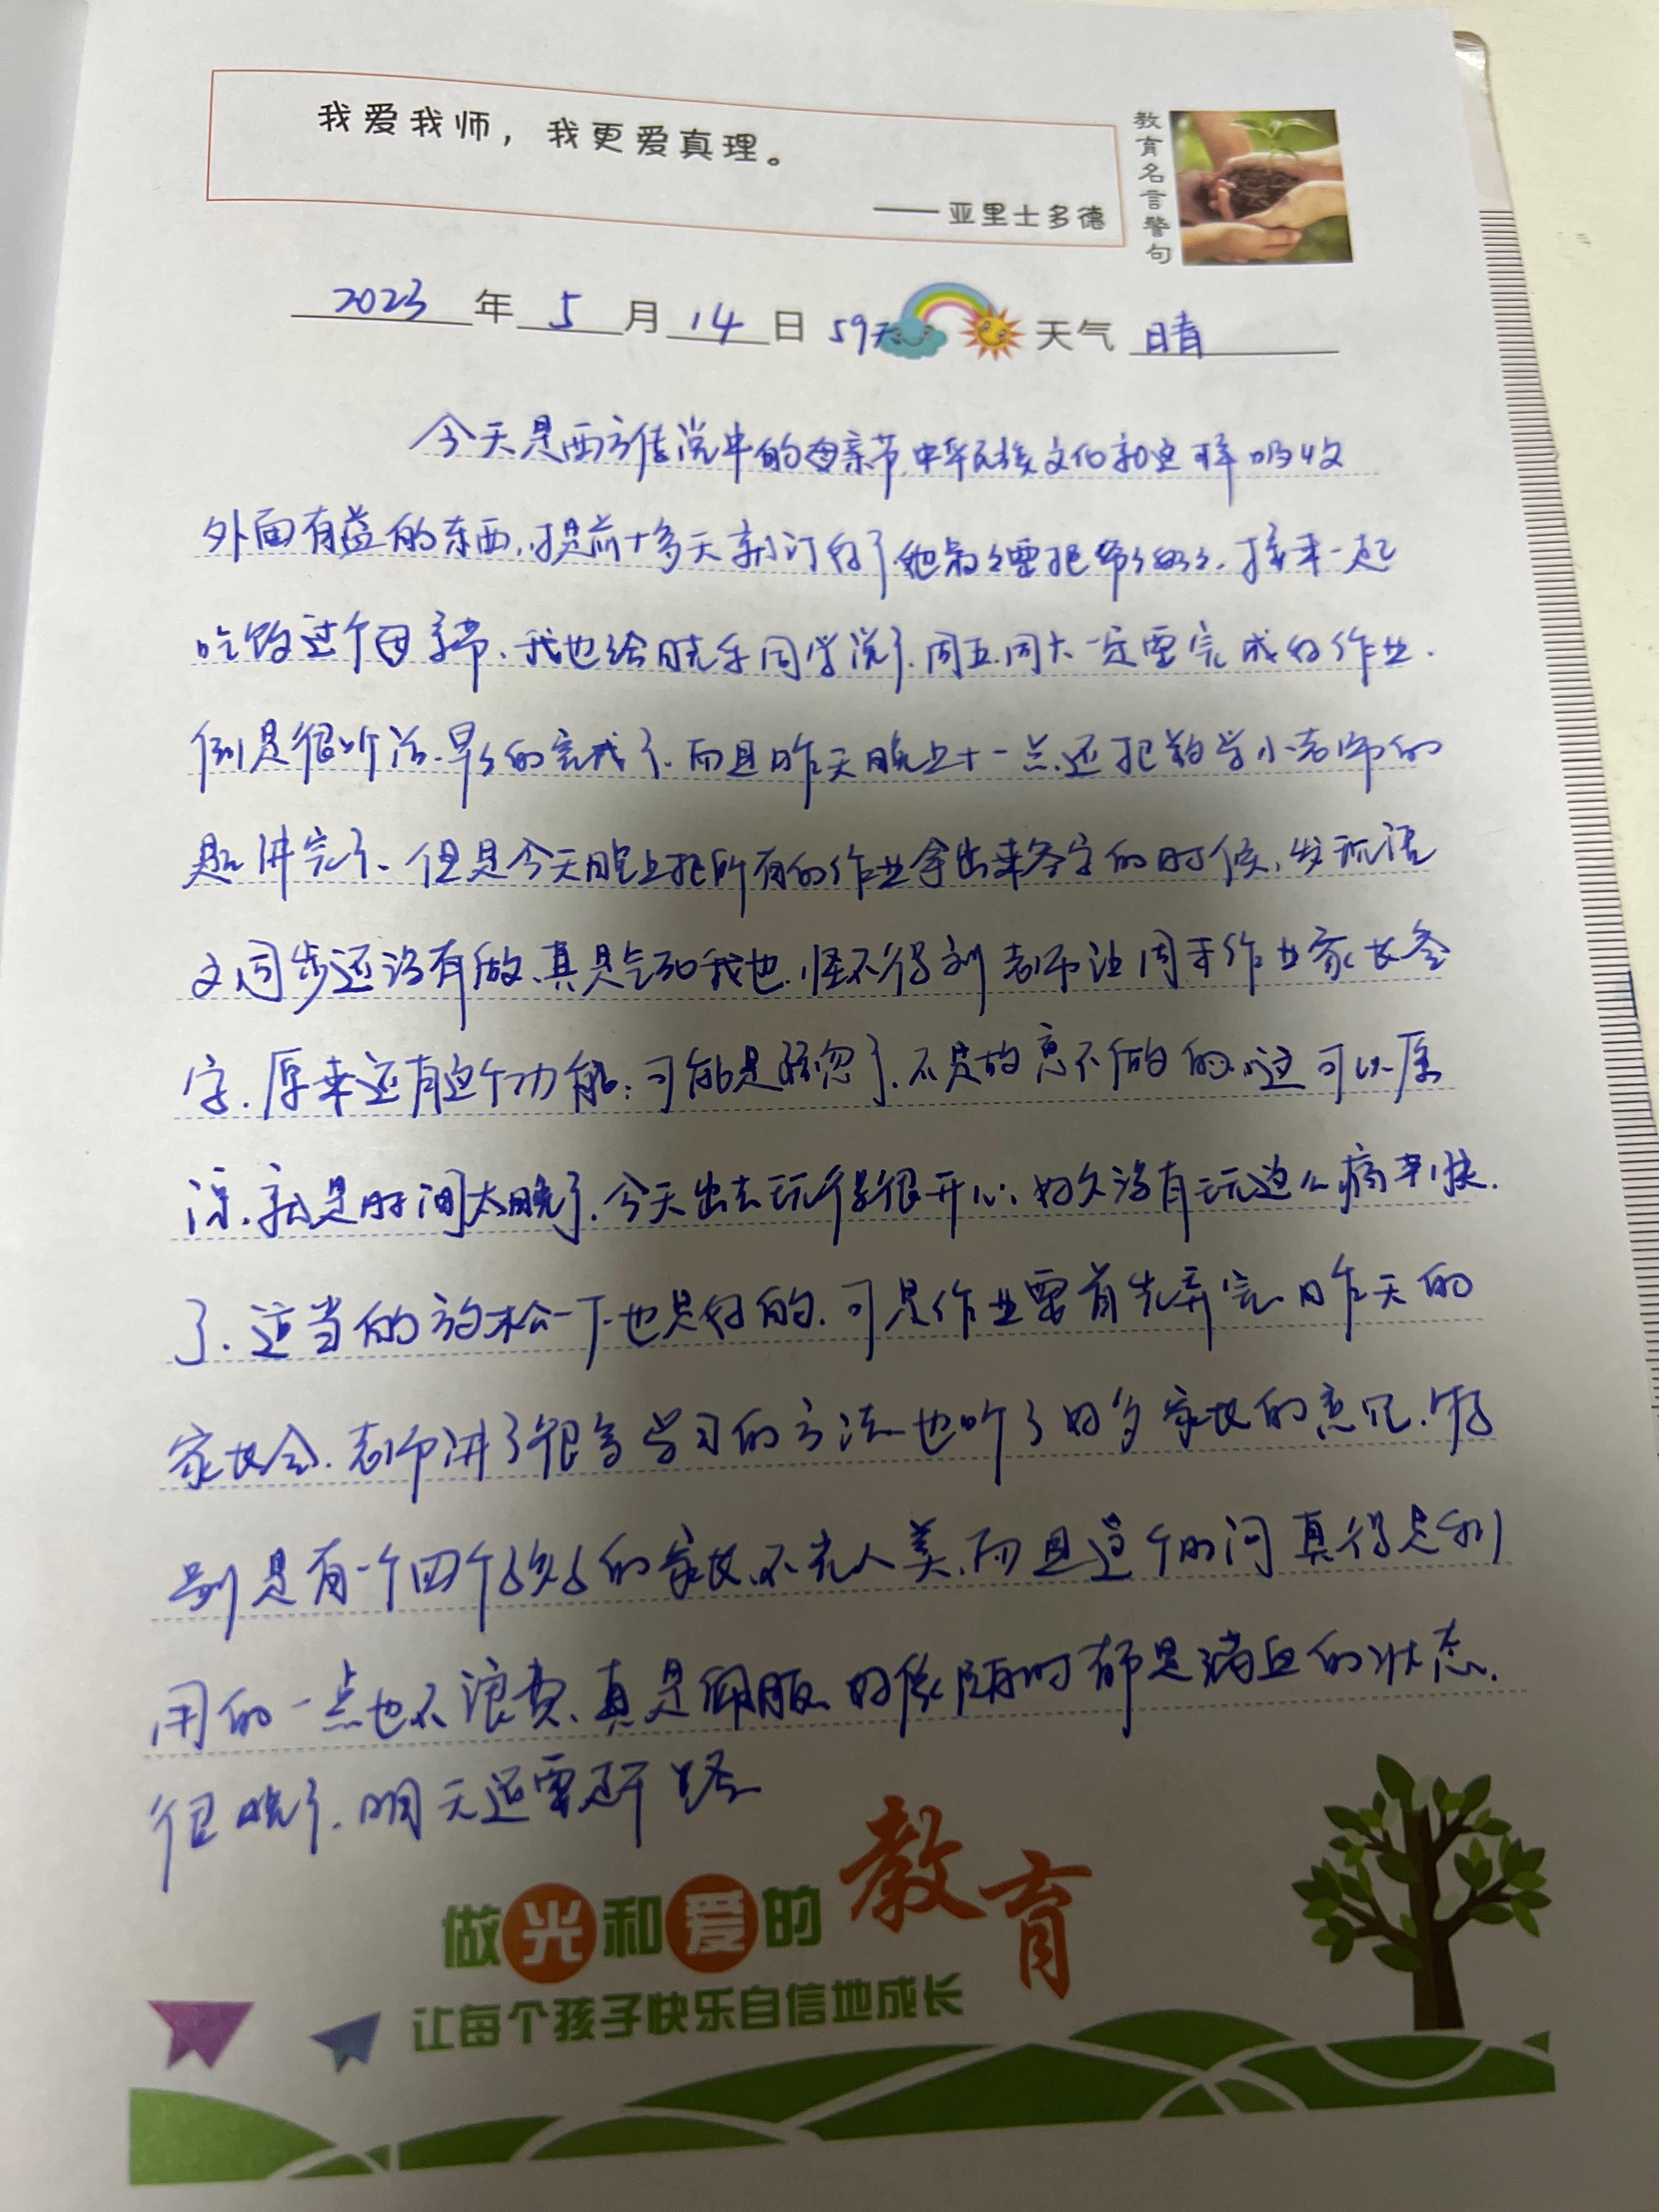 我爱我师，我更爱真理。
——亚里士多德
教育名言警句
2023年5月14日 59天 天气 晴
今天是西方传说中的母亲节.中华民族文化就这样吸收
外面有益的东西.提前十多天就订好了他叔叔要把爷爷奶奶.接来一起
吃饭过个母亲节.我也给晓乐同学说了.周五.周六一定要完成好作业.
倒是很听话.早早的完成了.而且昨天晚上十一点.还把数学小老师的
题讲完了、但是今天晚上把所有的作业拿出来签字的时候,发现语
文同步还没有做、真是气死我也.怪不得刘老师让周末作业家长签
字.原来还有这个功能：可能是疏忽了.不是故意不做的、这可以原
谅、就是时间太晚了.今天出去玩得很开心、好久没有玩这么痛快
了.适当的放松一下.也是好的.可是作业要首先弄完、昨天的
家长会.老师讲了很多学习的方法也听了好多家长的意见.特
别是有一个四个孩子的家长、不光人美、而且这个时间真得是利
用的一点也不浪费、真是佩服 好像随时都是满血的状态.
很晚了.明天还要
做光和爱的教育
让每个孩子快乐自信地成长